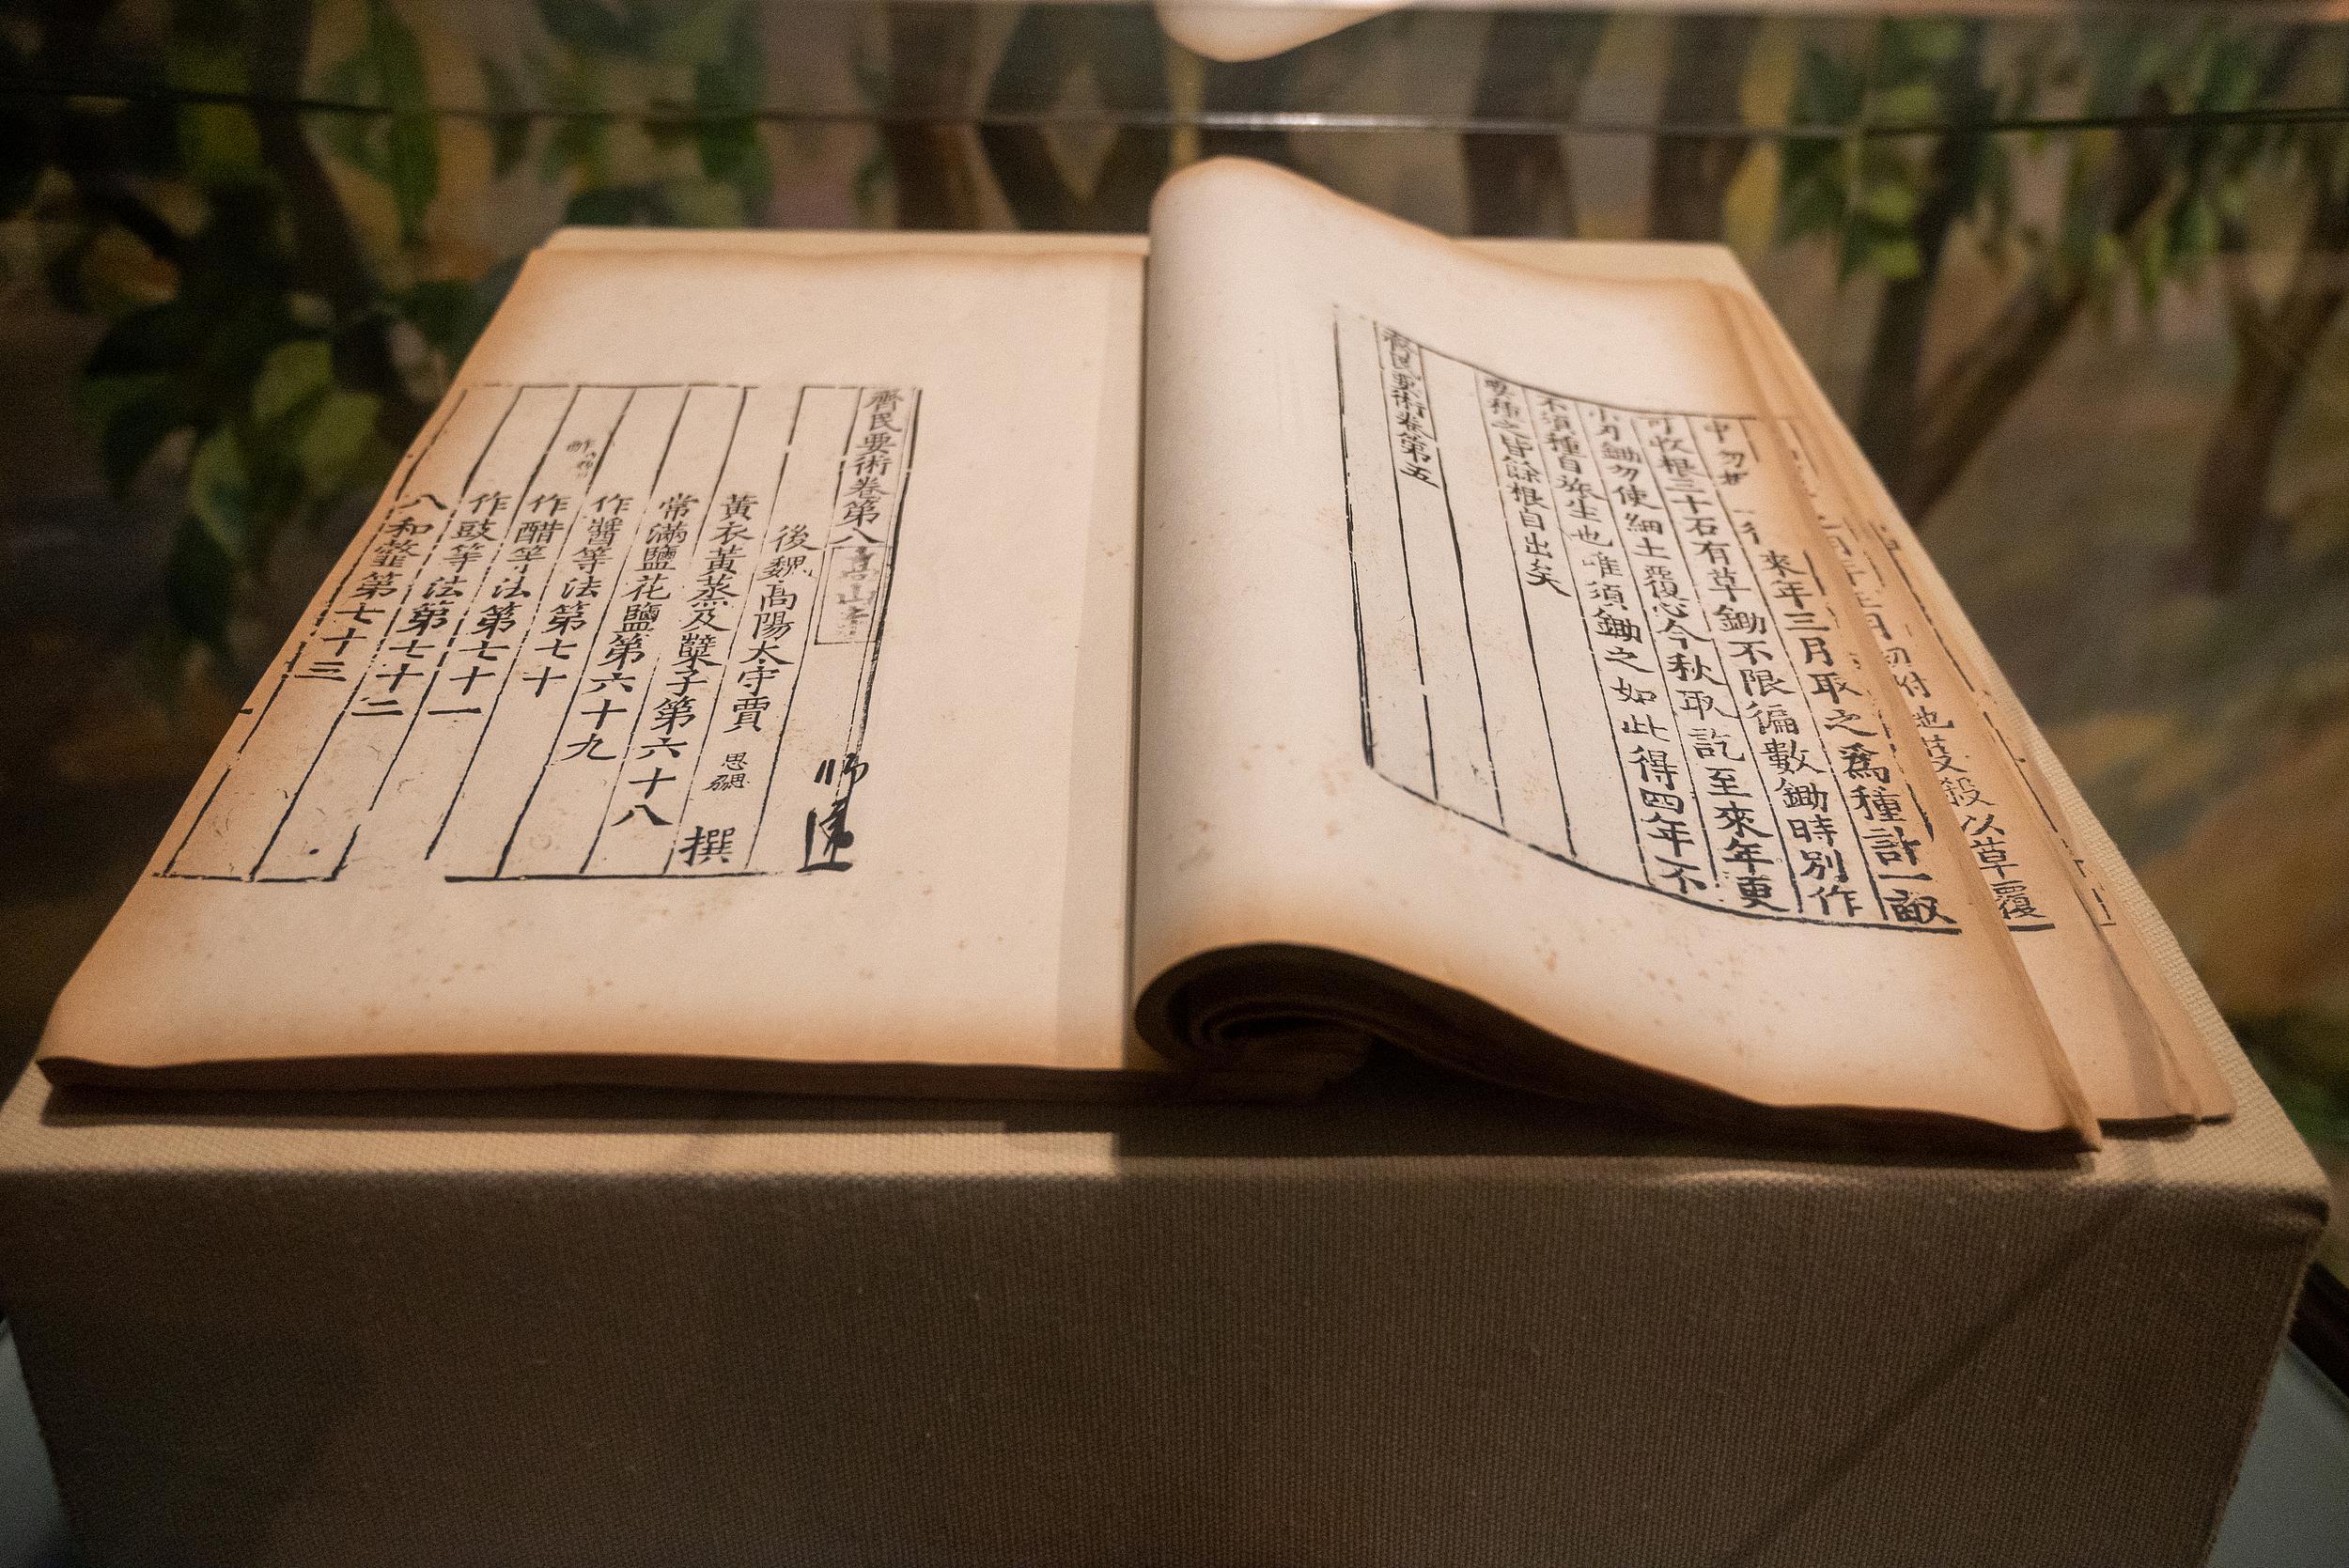 地芟殺以草覆
中勿 來年三月取之為種計一畝
可收根三十石有草鋤不限徧數鋤時別作
小刃鋤勿使細土覆心今秋取訖至來年更
不須種自旅生也唯須鋤之如此得四年不
要種之皆餘根自出矣
齊民要術卷第五
齊民要術卷第八
後魏高陽太守賈思勰撰
黃衣黃蒸及糵子第六十八
常滿鹽花鹽第六十九
作醬等法第七十
作醋等法第七十一
作豉等法第七十二
八和虀第七十三